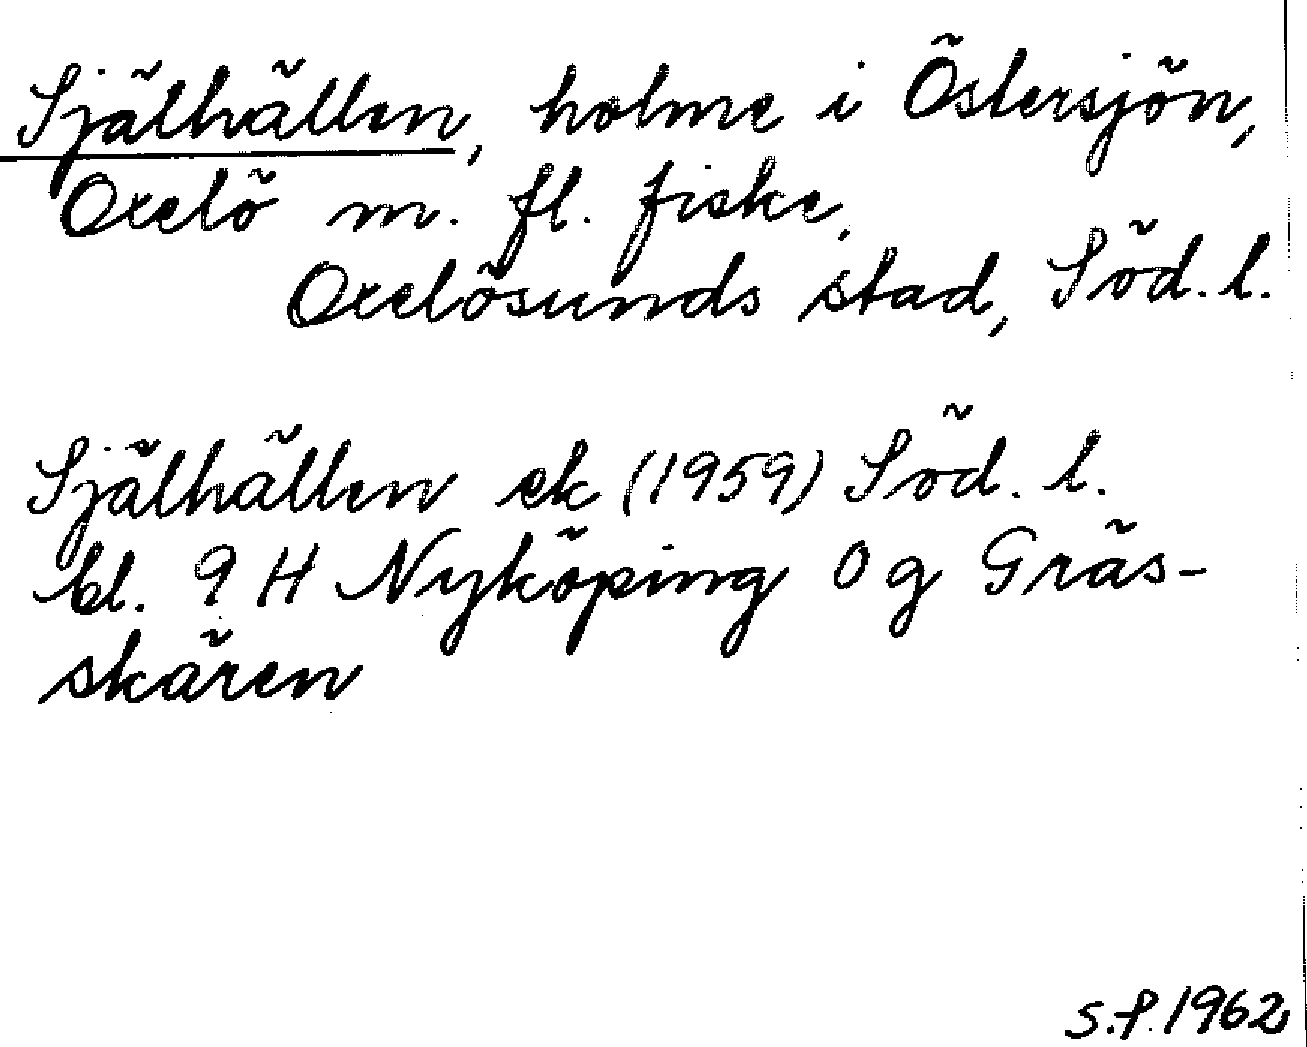 Själhällen, holme i Östersjön,
Oxelö m. fl. fiske,
Oxelösunds stad, Söd. l.
Själhällen ek (1959) Söd. l.
bl. 9 H Nyköping 0 g Gräs-
skären
S.F. 1962